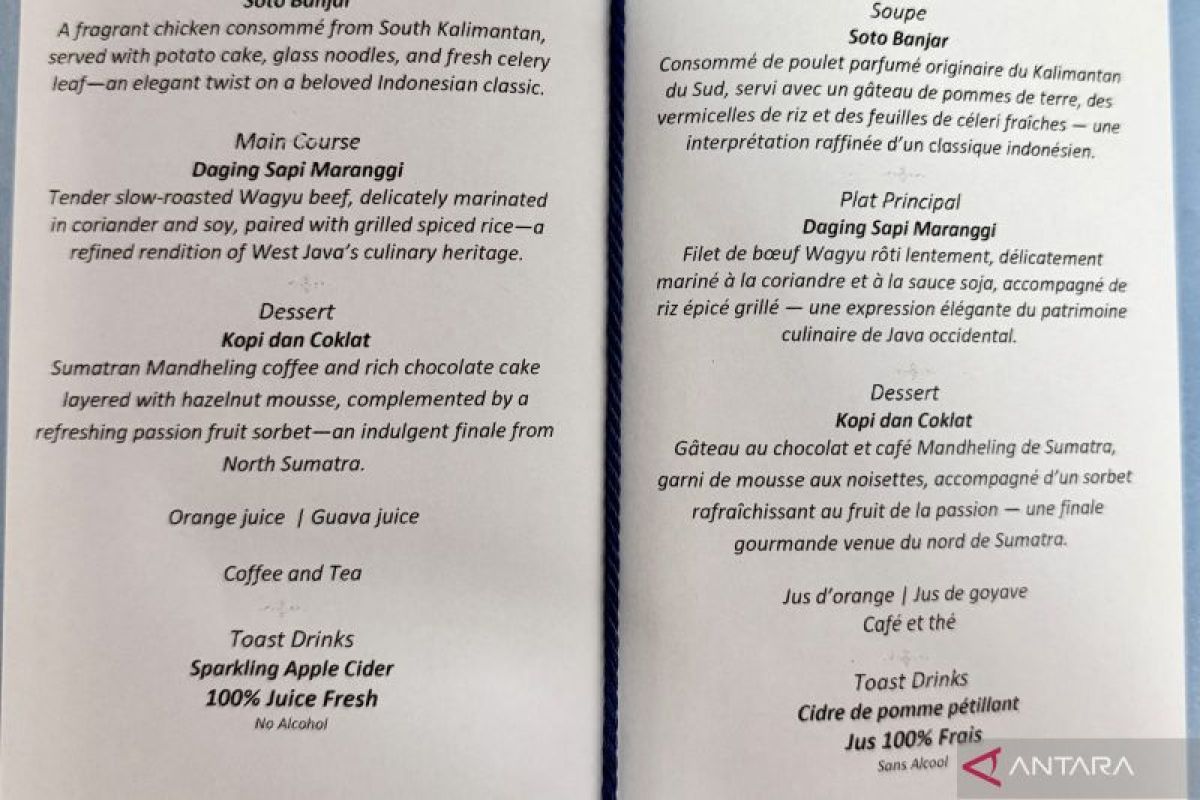 Soto Banjar
A fragrant chicken consommé from South Kalimantan,
served with potato cake, glass noodles, and fresh celery
leaf—an elegant twist on a beloved Indonesian classic.
Main Course
Daging Sapi Maranggi
Tender slow-roasted Wagyu beef, delicately marinated
in coriander and soy, paired with grilled spiced rice—a
refined rendition of West Java's culinary heritage.
Dessert
Kopi dan Coklat
Sumatran Mandheling coffee and rich chocolate cake
layered with hazelnut mousse, complemented by a
refreshing passion fruit sorbet—an indulgent finale from
North Sumatra.
Orange juice | Guava juice
Coffee and Tea
Toast Drinks
Sparkling Apple Cider
100% Juice Fresh
No Alcohol
Soupe
Soto Banjar
Consommé de poulet parfumé originaire du Kalimantan
du Sud, servi avec un gâteau de pommes de terre, des
vermicelles de riz et des feuilles de céleri fraîches — une
interprétation raffinée d'un classique indonésien.
Plat Principal
Daging Sapi Maranggi
Filet de bœuf Wagyu rôti lentement, délicatement
mariné à la coriandre et à la sauce soja, accompagné de
riz épicé grillé — une expression élégante du patrimoine
culinaire de Java occidental.
Dessert
Kopi dan Coklat
Gâteau au chocolat et café Mandheling de Sumatra,
garni de mousse aux noisettes, accompagné d'un sorbet
rafraîchissant au fruit de la passion — une finale
gourmande venue du nord de Sumatra.
Jus d'orange | Jus de goyave
Café et thé
Toast Drinks
Cidre de pomme pétillant
Jus 100% Frais
Sans Alcool
ANTARA